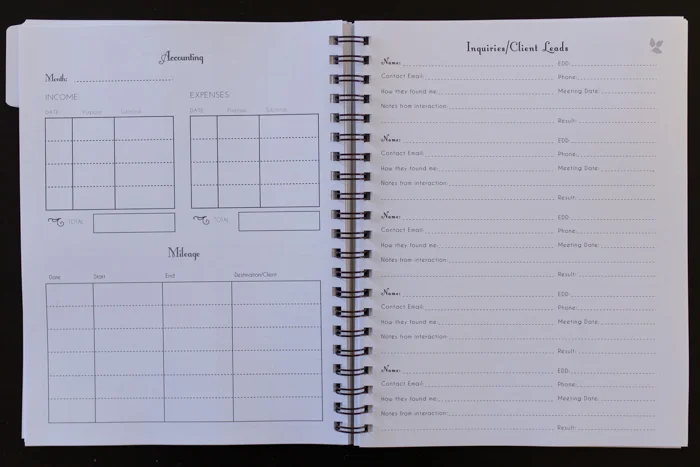 Accounting
Month:
INCOME: EXPENSES
DATE Purpose Service DATE Purpose Service
TOTAL TOTAL
Mileage
Date Start End Destination/Client
Inquiries/Client Leads
Name: EDD:
Contact Email: Phone:
How they found me: Meeting Date:
Notes from interaction:
Result:
Name: EDD:
Contact Email: Phone:
How they found me: Meeting Date:
Notes from interaction:
Result:
Name: EDD:
Contact Email: Phone:
How they found me: Meeting Date:
Notes from interaction:
Result:
Name: EDD:
Contact Email: Phone:
How they found me: Meeting Date:
Notes from interaction:
Result:
Name: EDD:
Contact Email: Phone:
How they found me: Meeting Date:
Notes from interaction:
Result: